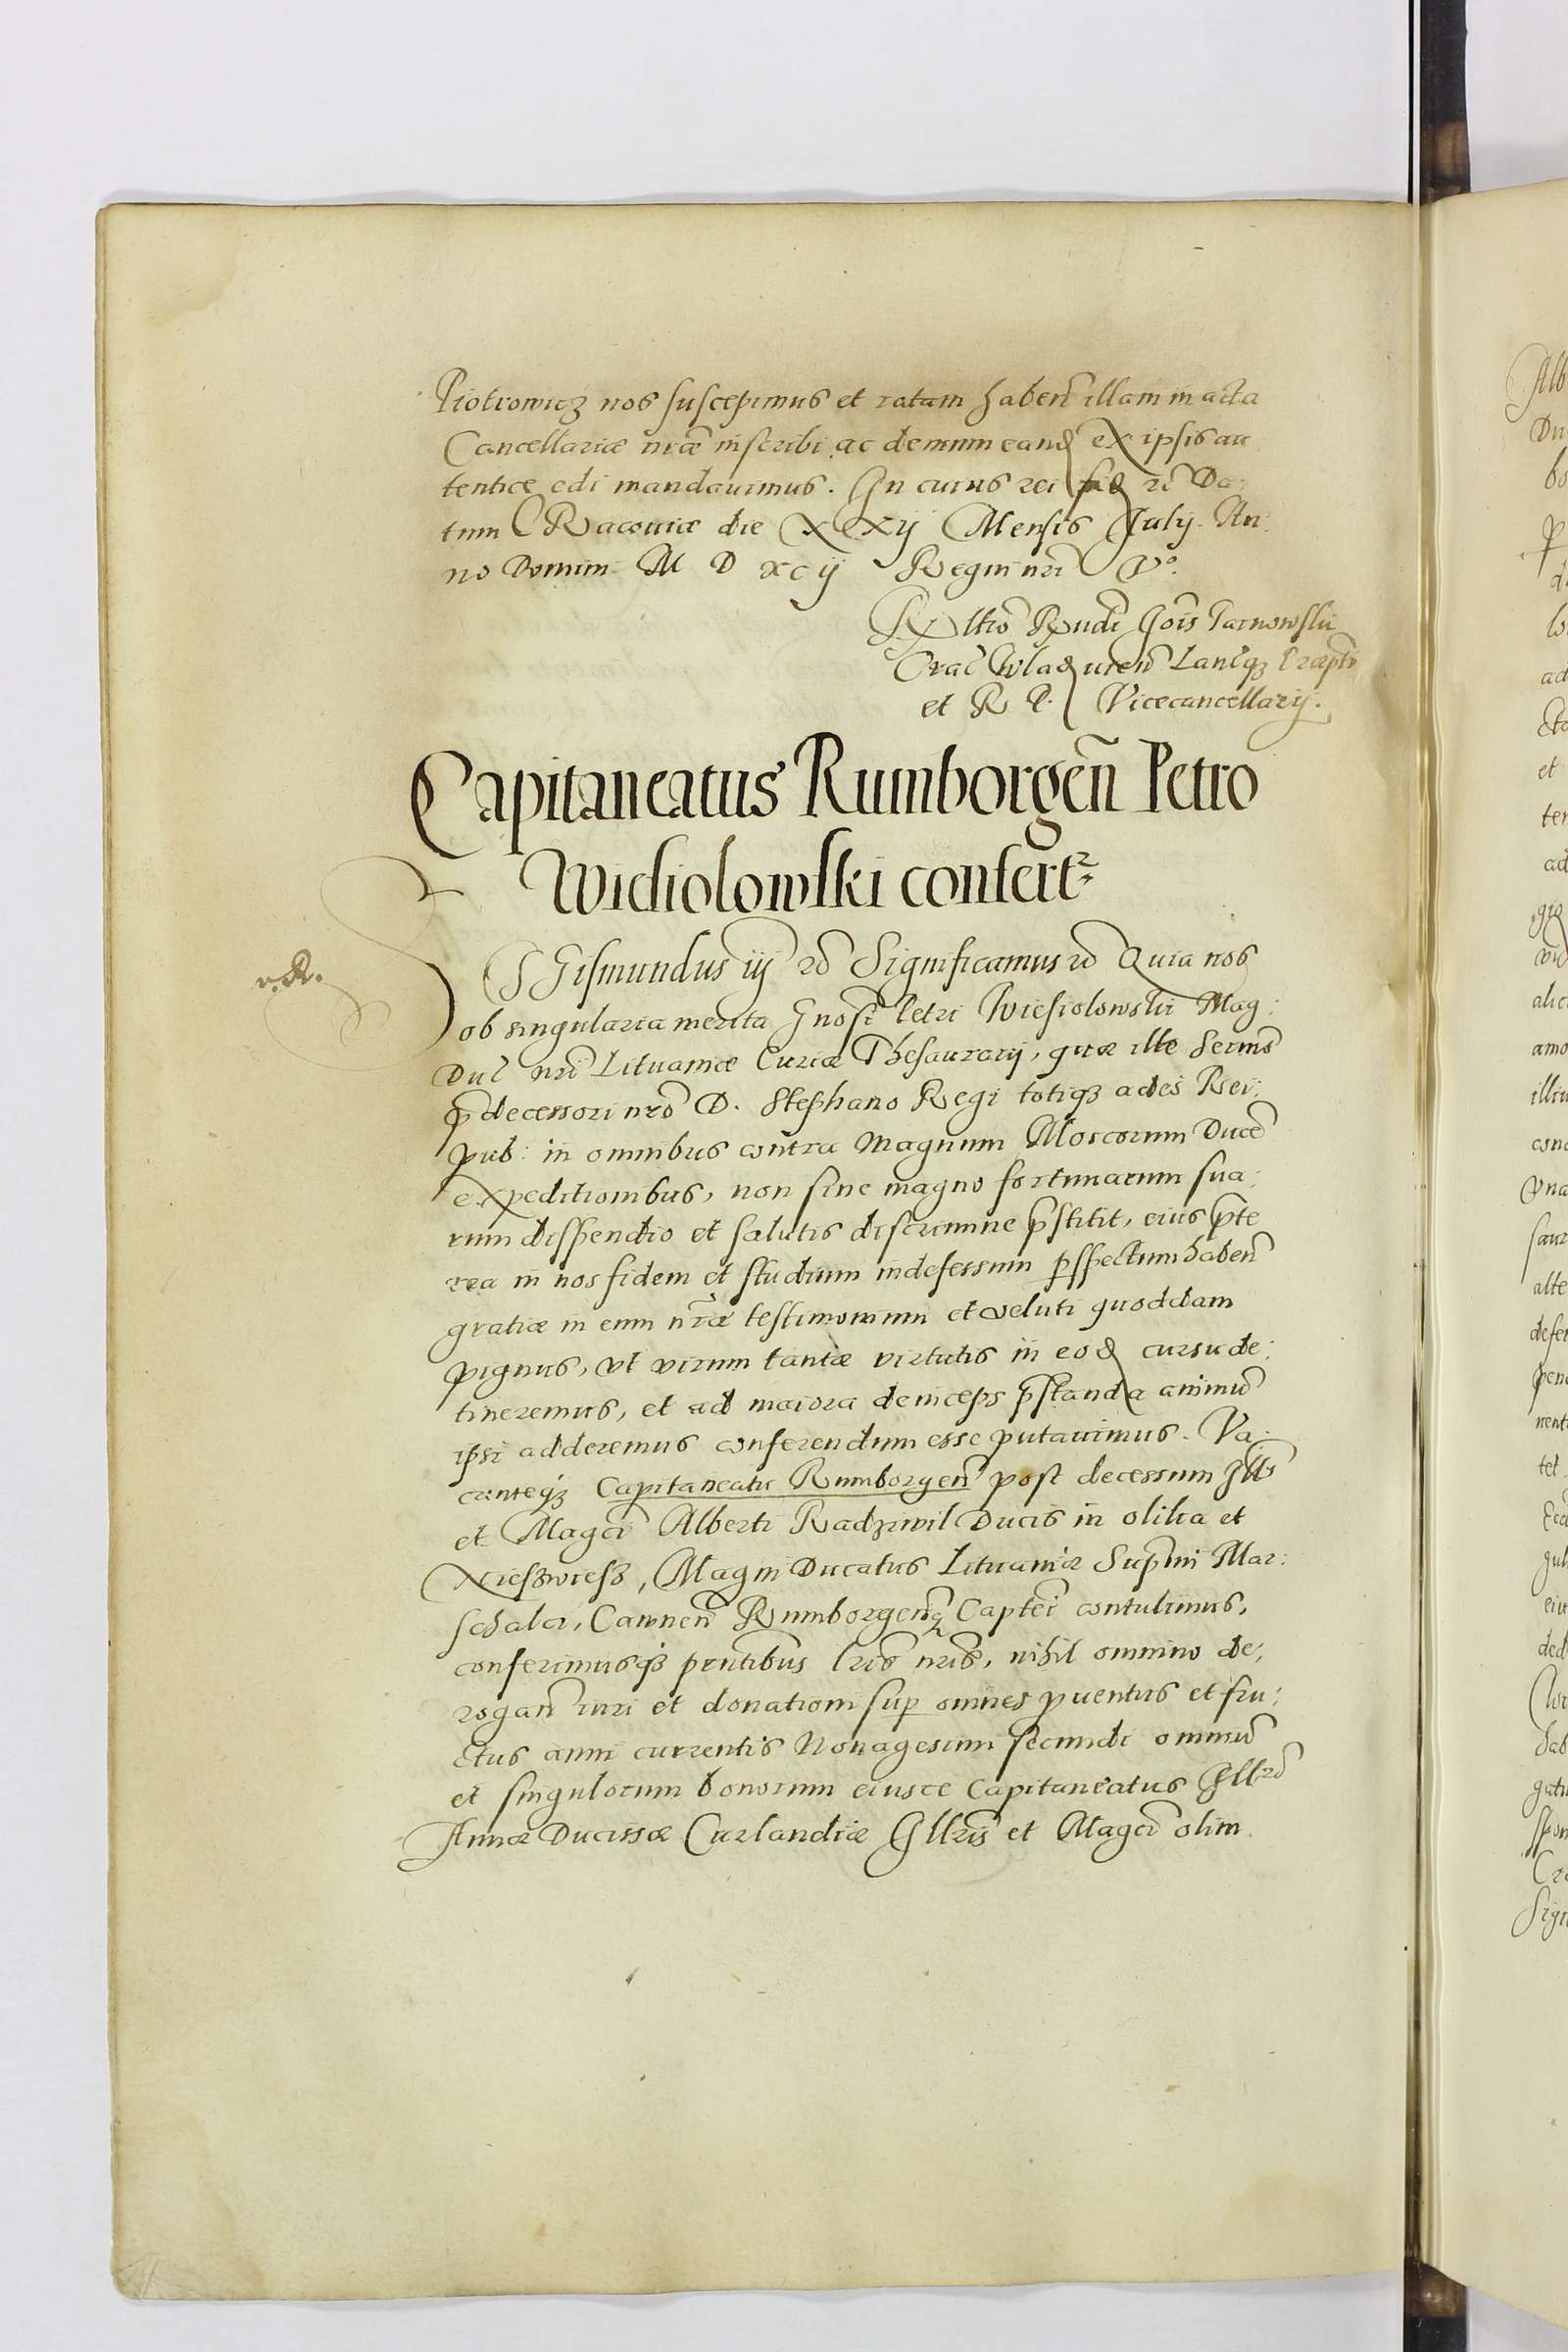 Piotrowicz nos suscepimus et ratam haben̄ illam in acta
Cancellariæ nr̄æ inscribi ac demum eand ex ipsis au
tentice edi mandauimus. In cuius rei fid rc̄ Da:
tum Cracouiæ die XXij Mensis July. An:
no Domini M D xcij Regni nr̄i Vº.
Rltio Rndi Jois̄ Tarnowskii
Wlad uien̄ Lancq
et R P. Vicecancellarij.
Capitaneatus Rumborgen̄ Petro
Wiesiolowski confertr
v. R.
SGismundus iij rc̄ Significamus rc̄ Quia nos
ob singularia merita Gnosi Petri Wiesiolowskii Mag:
Duc̄ nr̄i Lituaniæ Curiæ Thesaurarij, quæ ille Sermo
p̄decessori nr̄o D. Stephano Regi totiq3 adeo Rei:
pub: in omnibus contra Magnum Moscorum Ducē
expeditionibus, non sine magno fortunarum sua:
rum dispendio et salutis discrimine p̄stitit, eius p̄te
rea in nos fidem et studium indefessum perspectum haben̄
gratiæ in eum nr̄æ testimonium et veluti quoddam
pignus, vt virum tantæ virtutis in eod cursu de:
tineremus, et ad maiora deinceps p̄standa animū
ipsi adderemus conferendum esse putauimus. Va:
canteq3 Capitaneatu Rumborgen̄ post decessum Illis
et Magci Alberti Radziwil Ducis in olika et
Niesswiess, Magni Ducatus Lituaniæ Supmi Mar:
schalci, Cawnen̄ Rumborgenq Captei contulimus,
conferimusq3 prn̄tibus lr̄is nr̄is, nihil omnino de:
rogan̄ iuri et donationi sup omnes puentus et fru:
ctus anni currentis Nonagesimi secundi omniū
et singulorum bonorum eiusce Capitaneatus Illro
Annæ Ducissæ Curlandiæ Illris et Magci olim